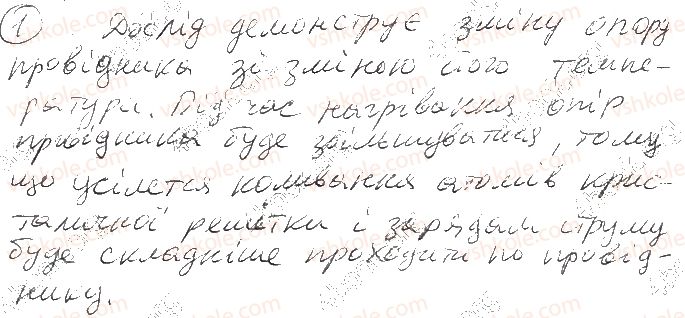 ① Дослід демонструє зміну опору
провідника зі зміною його темпе-
ратури. Під час нагрівання опір
провідника буде збільшуватися, тому
що усілется коливання атомів крис-
талічної решітки і зарядам струму
буде складніше проходити по провід-
нику.